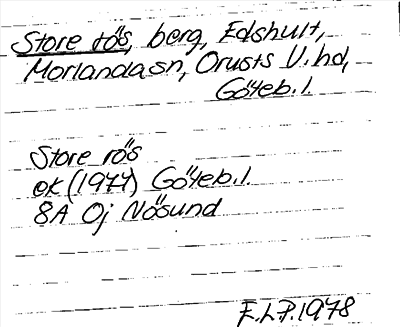 Store rös, berg, Edshult,
Morlanda sn, Orusts V. hd,
Göteb. l.
Store rös
ek (1977) Göteb. l.
8A Oj Nösund
E.L.P. 1978